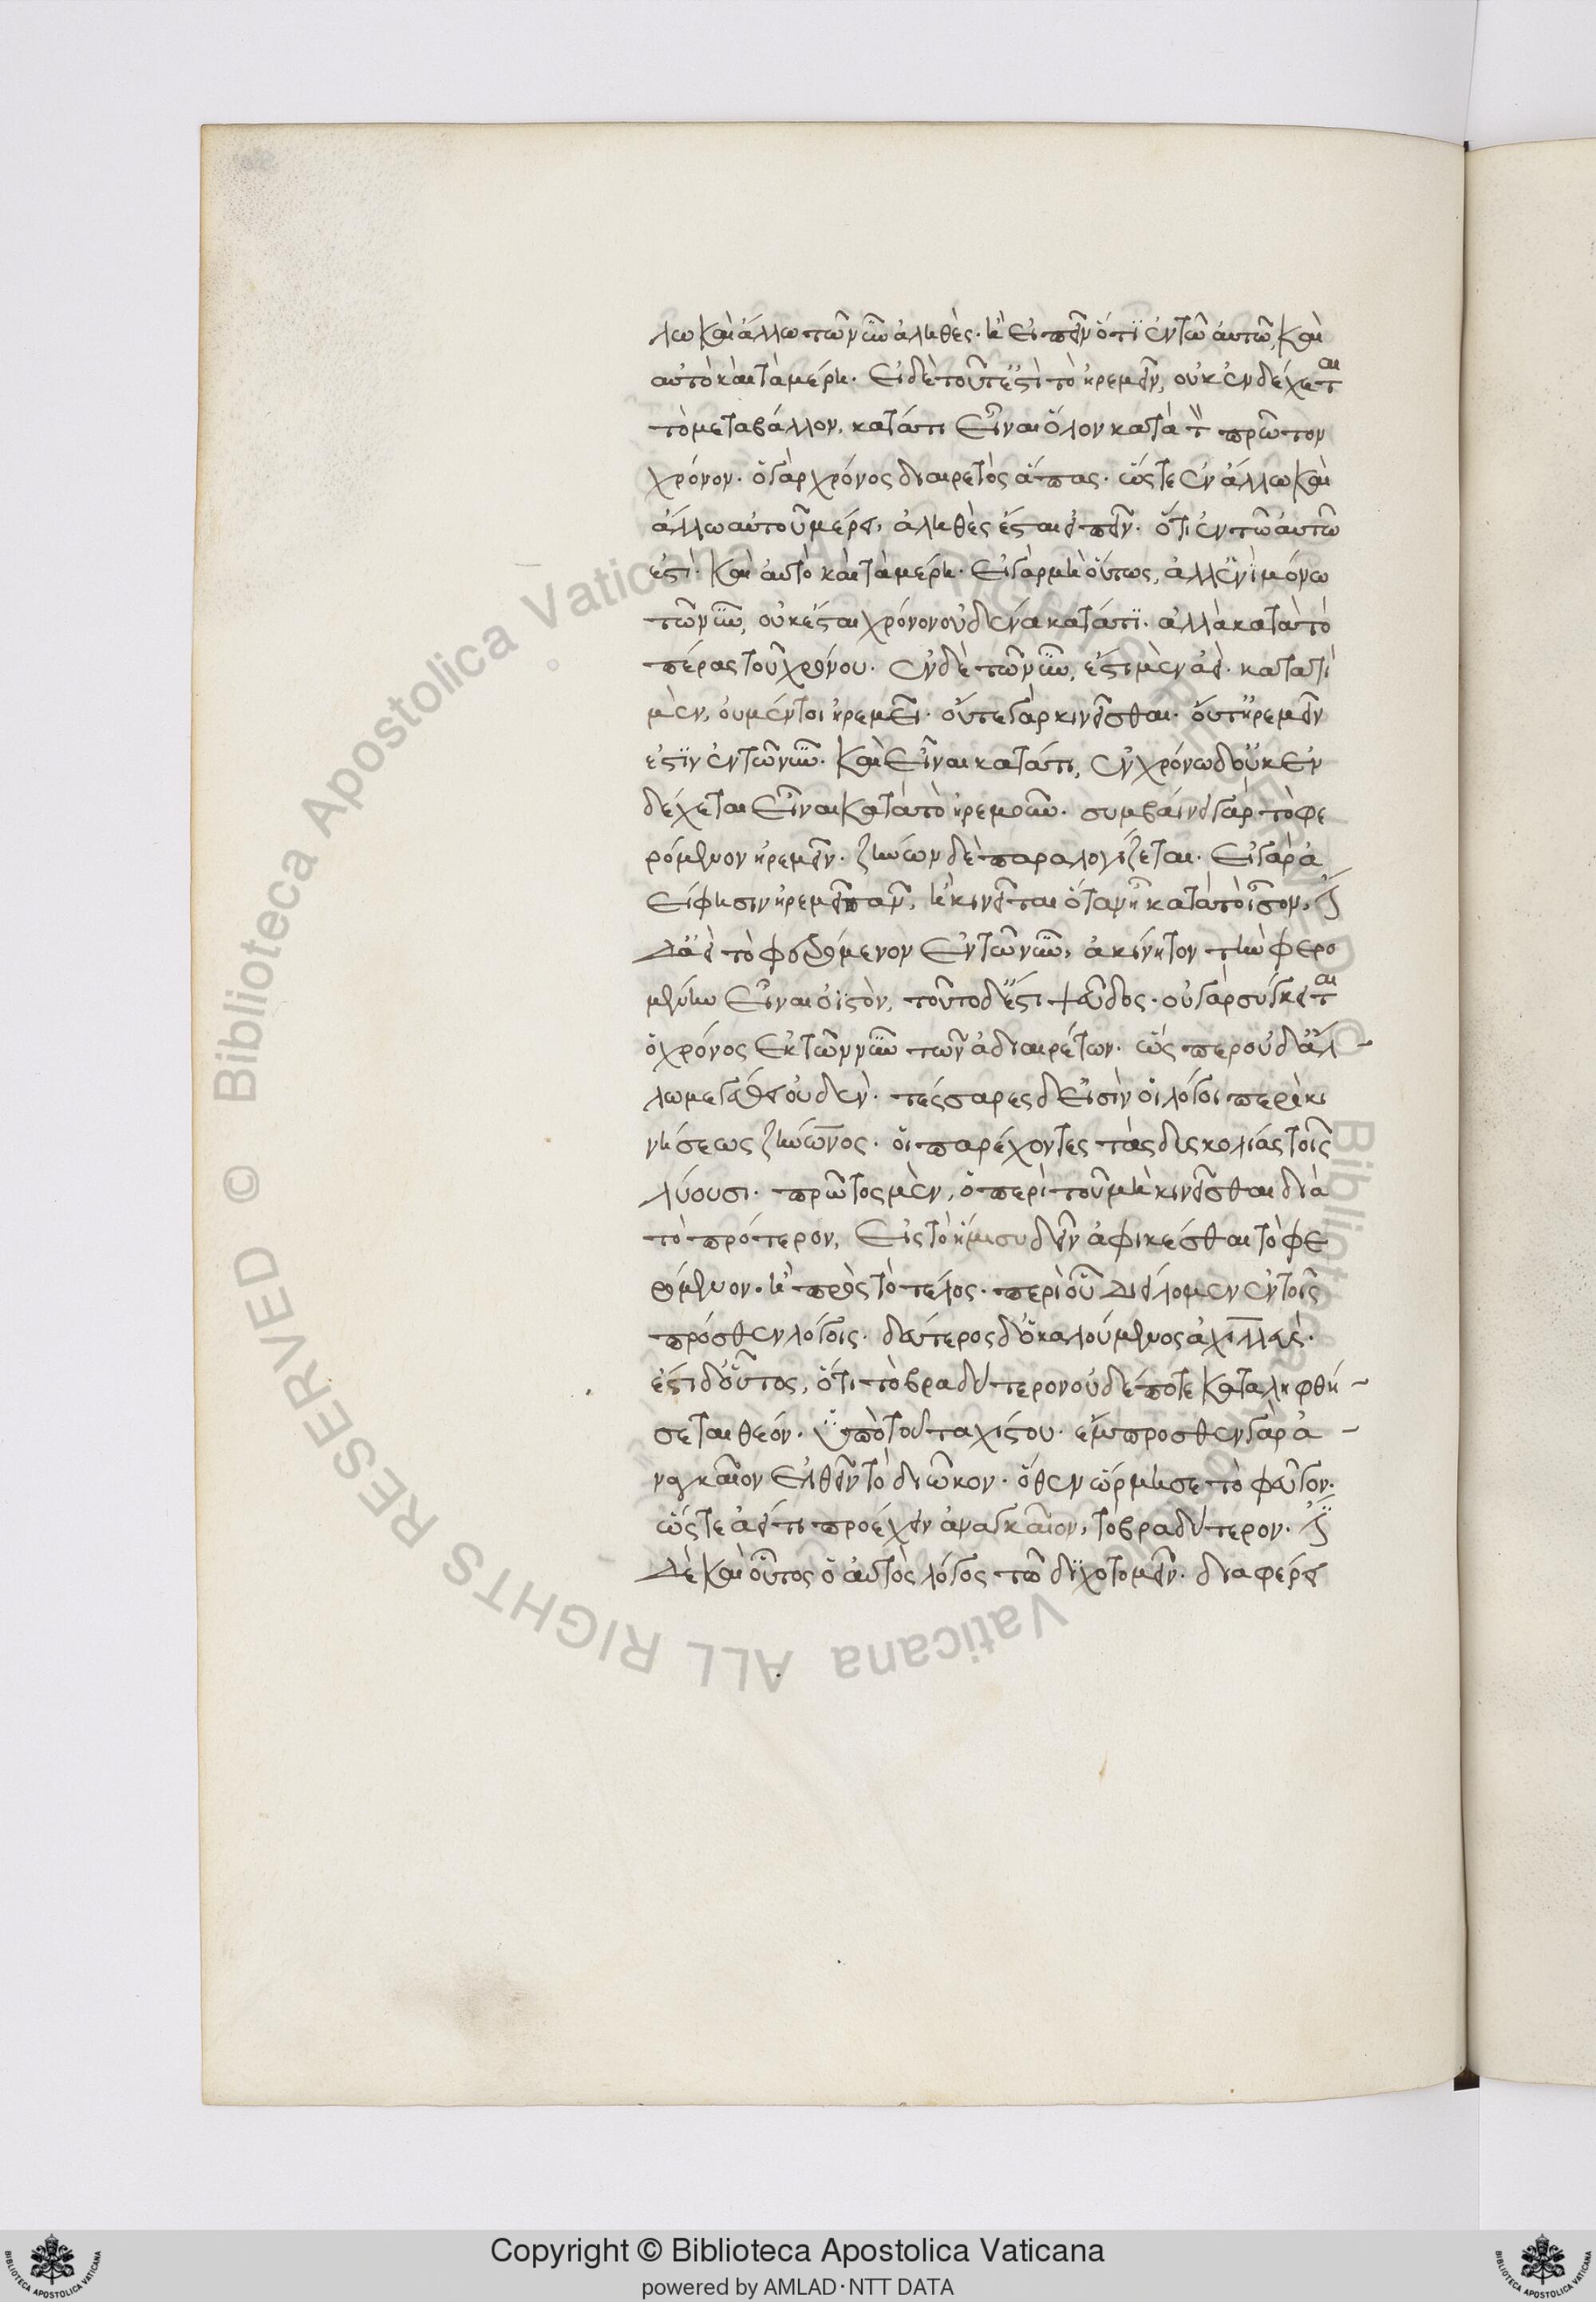 λω καὶ ἄλλω τῶν νῦν ἀληθὲς. κ̀ εἰπεῖν ὅτι ἐν τῶ ἀυτῶ, καὶ
αὐτὸ καὶ τὰ μέρη. Εἰ δὲ τοῦτ ἔστὶ τὸ ἠρεμεῖν, οὐκ ἐνδέχεται
τὸ μεταβάλλον, κατά τι εἶναι ὅλον κατὰ τ̀ πρῶτον
χρόνον. ὁ γὰρ χρόνος διαιρετὸς ἅπας. ὥστε ἐν ἄλλω καὶ
ἄλλω αὐτοῦ μέρει, ἀληθὲς ἔσται εἰπεῖν. ὅτι ἐν τῶ ἀυτῶ
ἐστὶ. καὶ ἀυτὸ καὶ τὰ μέρη. Εἰ γὰρ μὴ ὅυτως, ἀλλ ἐνὶ μόνω
τῶν νῦν, οὐκ ἔσται χρόνον οὐδένα κατά τι. ἀλλὰ κατὰ τὸ
πέρας τοῦ χρόνου. ἐν δὲ τῶ νῦν, ἔστι μὲν ἀεὶ. κατά τι
μὲν, ὀυ μέντοι ἠρεμεῖ. οὔτε γὰρ κινεῖσθαι. ὄυτ ἠρεμεῖν
ἐστὶν ἐν τῶ νῦν. καὶ εἶναι κατά τι, ἐν χρόνω δ οὐκ ἐν
δέχεται εἶναι κατὰ τὸ ἠρεμοῦν. συμβαίνει γὰρ τὸ φε
ρόμενον ἠρεμεῖν. ζήνων δὲ παραλογίζεται. Εἰ γὰρ ἀ
εί φησιν ἠρεμεῖ παν, ἢ κινεῖται ὅταν ῆ κατὰ τὸ ἶσον, ἔστι
δ ἀεὶ τὸ φερόμενον ἐν τῶ νῦν, ἀκίνητον τὴν φερο
μένην εἶναι ὀϊστὸν, τοῦτο δ ἔστι ψεῦδος. οὐ γὰρ σύγκειται
ὁ χρόνος ἐκ τῶν νῦν τῶν ἀδιαιρέτων. ὥς περ οὐδ ἄλ
λω μεγέθει οὐδὲν. τέσσαρες δ εἰσὶν οἱ λόγοι περὶ κι
νήσεως ζήνωνος. ὁι παρέχοντες τὰς δυσκολίας τοῖς
λύουσι. πρῶτος μὲν, ὁ περὶ τοῦ μὴ κινεῖσθαι διὰ
τὸ πρότερον, εἰς τὸ ἥμισυ δεῖν ἀφικέσθαι τὸ φε
ρόμενον. ἢ πρὸς τὸ τέλος. περὶ οὗ διείλομεν ἐν τοῖς
πρόσθεν λόγοις. δεύτερος δ ὁ καλούμενος ἀχιλλεὺς.
ἔστι δ οὗτος, ὅτι τὸ βραδύτερον οὐδέποτε καταληφθή
σεται θεόν. ὑπὸ τοῦ ταχίστου. ἔμπροσθεν γὰρ ἀ
ναγκαῖον ἐλθεῖν τὸ διῶκον. ὅθεν ὥρμησε τὸ φεῦγον.
ὥστε ἀεί τι προέχειν ἀναγκαῖον, τὸ βραδύτερον. ἔστι
δὲ καὶ οὗτος ὁ αυτὸς λόγος τῶ διχοτομεῖν. διαφέρει